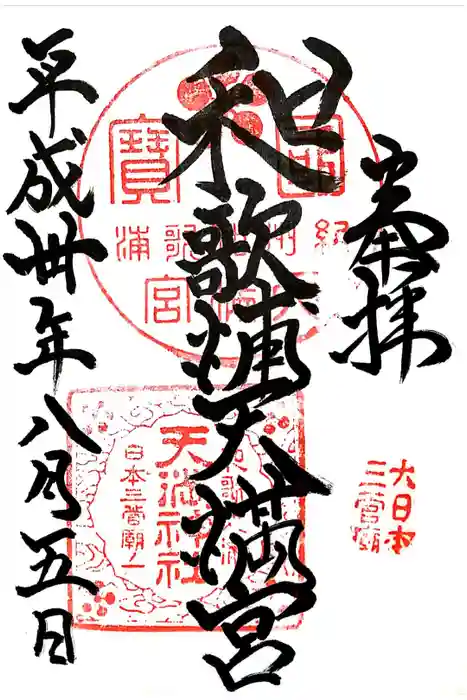 奉拝
大日本
三菅廟
和歌浦天満宮
紀州和歌浦
天満宮
天満神社
日本三菅廟一
平成卅年八月五日